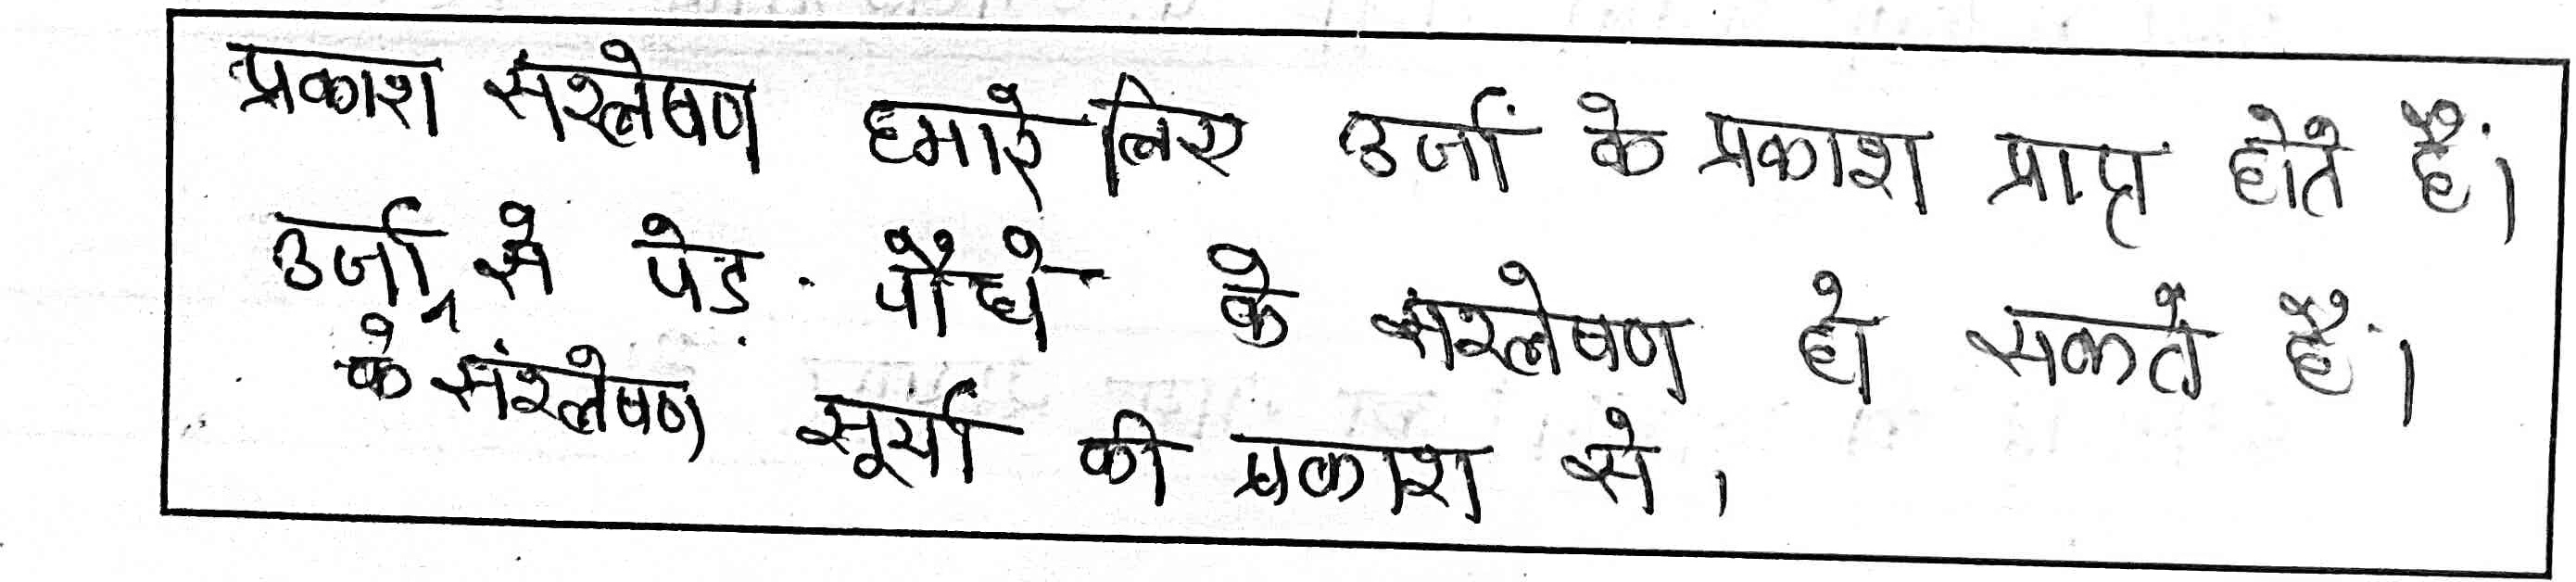 प्रकाश संश्लेषण हमारे लिए उर्जा के प्रकाश प्राप्त होते हैं।
उर्जा से पेड़ पौधे के संश्लेषण हो सकते हैं।
के संश्लेषण सूर्या की प्रकाश से।